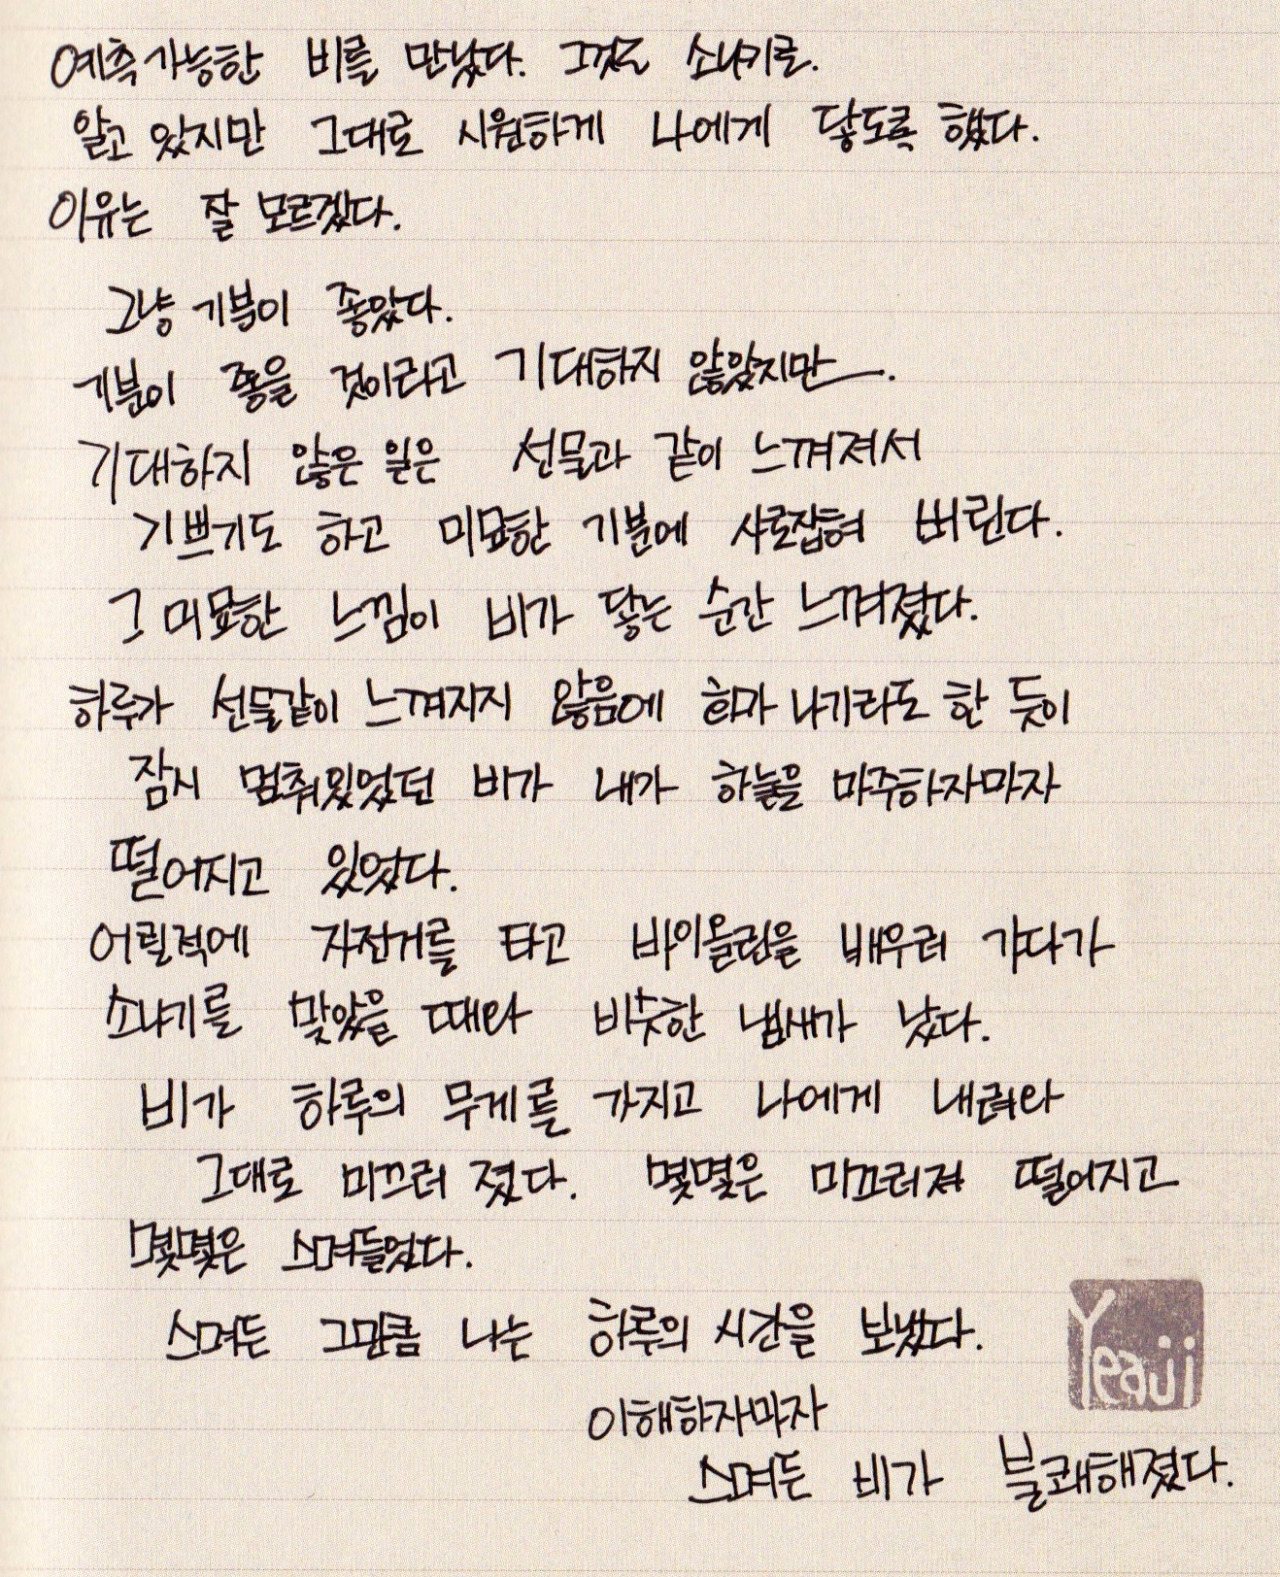 예측가능한 비를 만났다. 그것도 소나기로.
알고 있지만 그대로 시원하게 나에게 닿도록 했다.
이유는 잘 모르겠다.
그냥 기분이 좋았다.
기분이 좋을 것이라고 기대하지 않았지만.
기대하지 않은 일은 선물과 같이 느껴져서
기쁘기도 하고 미묘한 기분에 사로잡혀 버린다.
그 미묘한 느낌이 비가 닿는 순간 느껴졌다.
하루가 선물같이 느껴지지 않음에 화가 나기라도 한 듯이
잠시 멈춰있었던 비가 내가 하늘을 마주하자마자
떨어지고 있었다.
어릴적에 자전거를 타고 바이올린을 배우러 가다가
소나기를 맞았을 때와 비슷한 냄새가 났다.
비가 하루의 무게를 가지고 나에게 내려와
그대로 미끄러 졌다. 몇몇은 미끄러져 떨어지고
몇몇은 스며들었다.
스며든 그만큼 나는 하루의 시간을 보냈다.
Yeaji
이해하자마자
스며든 비가 불쾌해졌다.